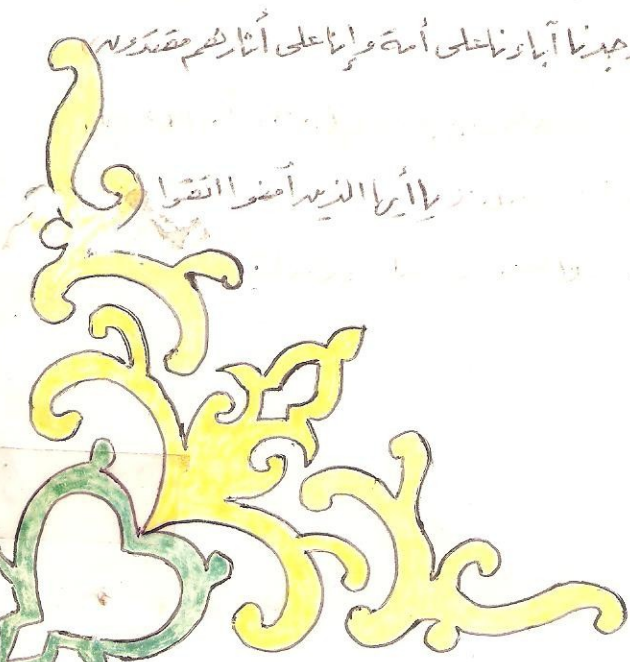 وجدنا آباءنا على أمة وإنا على أثارهم مقتدون
يا أيها الذين آمنوا اتقوا